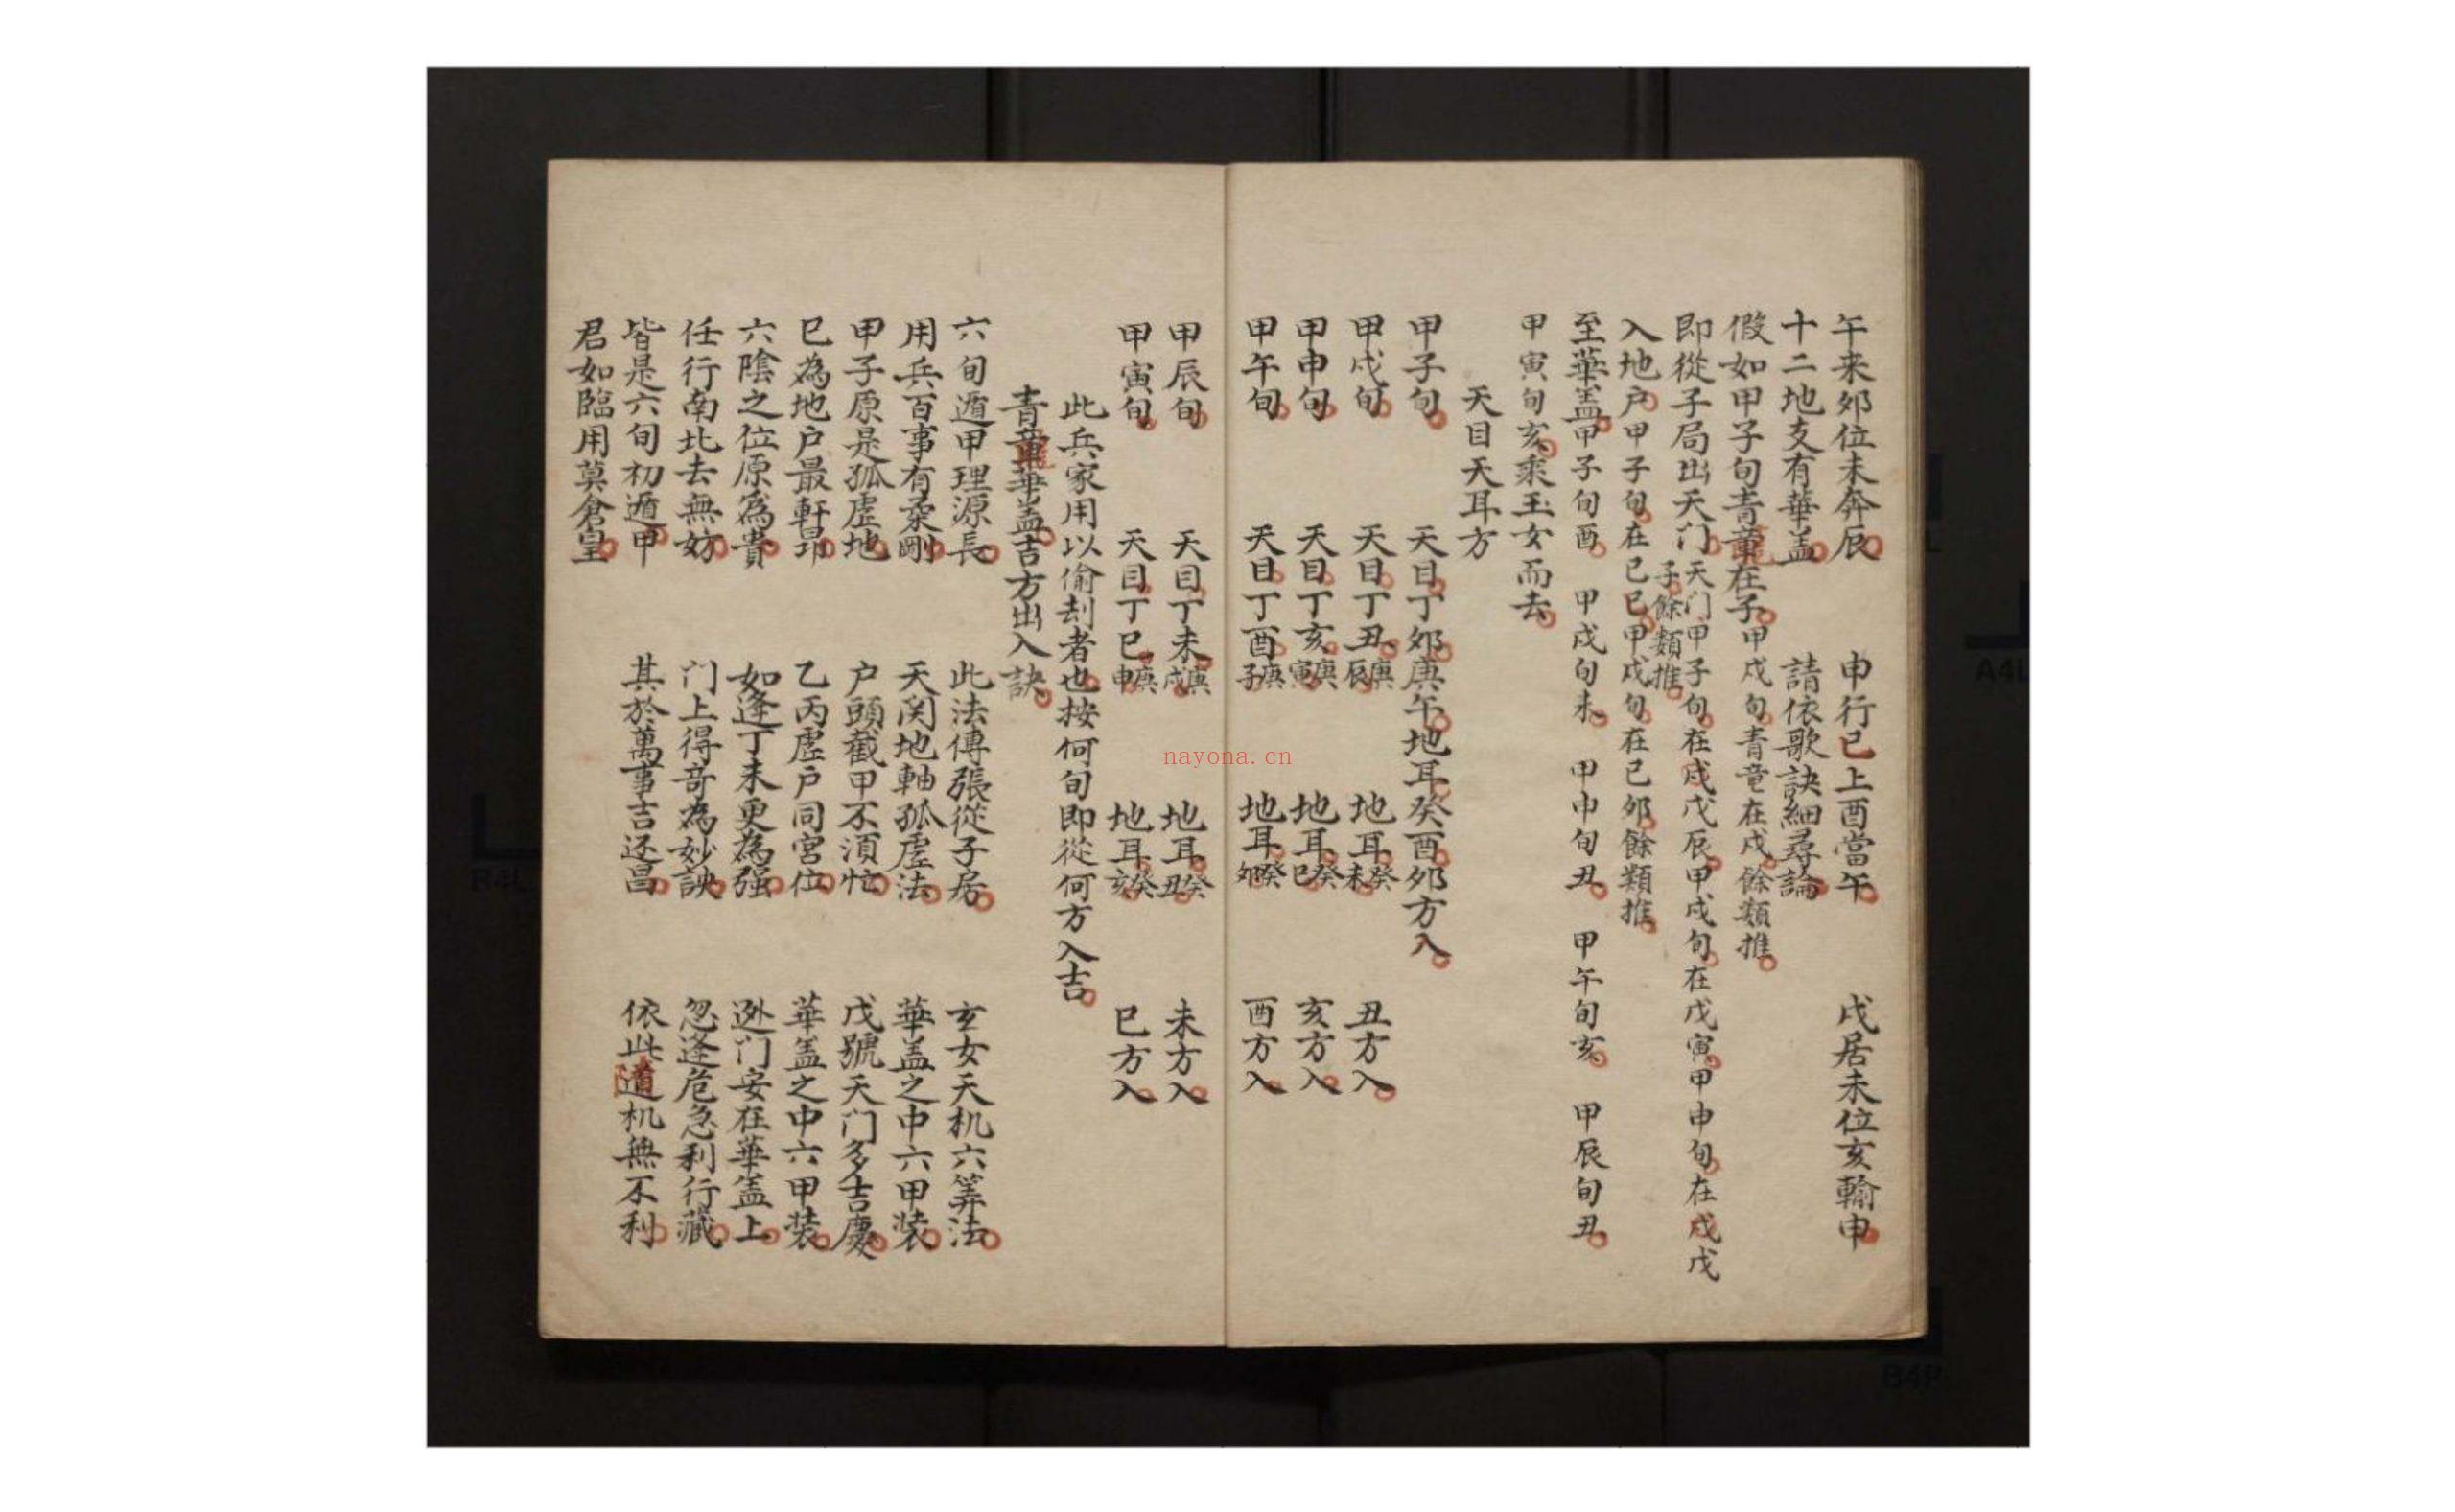 午来夘位未奔辰 申行巳上酉當午 戌居未位亥輸申
十二地支有華盖 請依歌訣細尋論
假如甲子旬青竜在子甲戌旬青竜在戌餘類推
即從子局出天门天门甲子旬在戊戊辰甲戌旬在戊寅甲申旬在戊戊
子餘類推
入地户甲子旬在己巳甲戌旬在己夘餘類推
至華盖甲子旬酉 甲戌旬未 甲申旬丑 甲午旬亥 甲辰旬丑
甲寅旬亥乘玉女而去
天目天耳方
甲子旬 天目丁夘庚午地耳癸酉夘方入
甲戌旬 天目丁丑庚辰 地耳癸未 丑方入
甲申旬 天目丁亥庚寅 地耳癸巳 亥方入
甲午旬 天目丁酉庚子 地耳癸夘 酉方入
甲辰旬 天目丁未庚戌 地耳癸丑 未方入
甲寅旬 天目丁巳庚申 地耳癸亥 巳方入
此兵家用以偷刦者也按何旬即從何方入吉
青竜華盖吉方出入訣
六旬遁甲理源長 此法傳張從子房 玄女天机六筭法
用兵百事有柔剛 天関地軸孤虚法 華盖之中六甲装
甲子原是孤虚地 户頭截甲不須忙 戊號天门多吉慶
巳為地户最軒昂 乙丙虚户同宮位 華盖之中六甲装
六陰之位原為貴 如逢丁未更為强 迯门安在華盖上
任行南北去無妨 门上得竒為妙訣 忽逢危急利行藏
皆是六旬初遁甲 其於萬事吉还昌 依此遁机無不利
君如臨用莫倉皇
nayona.cn